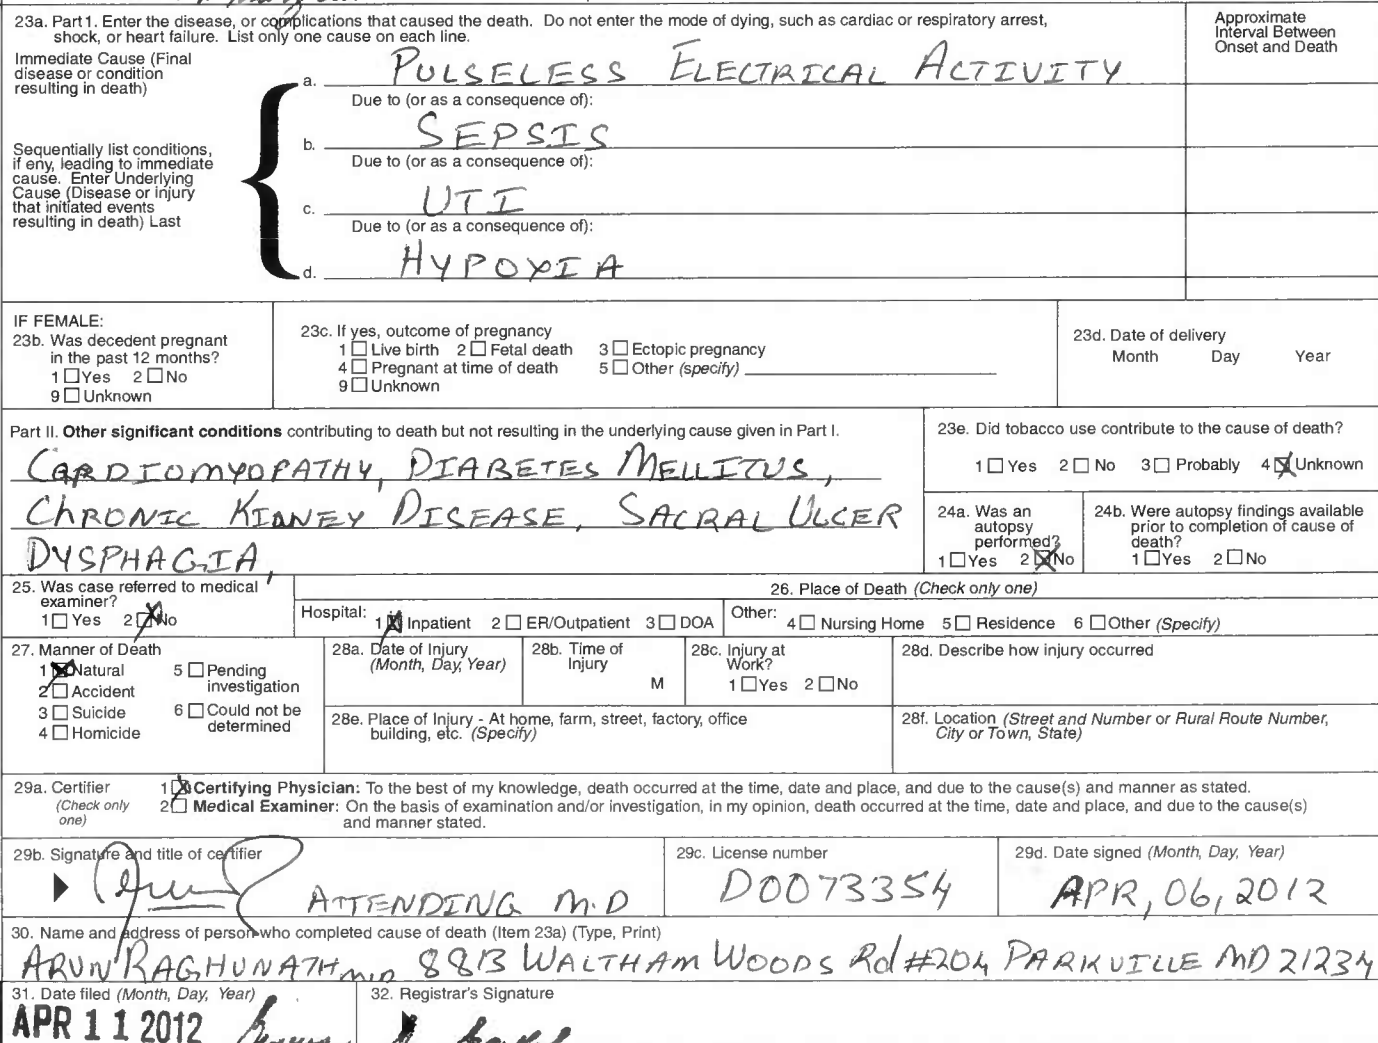 23a. Part 1. Enter the disease, or complications that caused the death. Do not enter the mode of dying, such as cardiac or respiratory arrest,
shock, or heart failure. List only one cause on each line.
Approximate
Interval Between
Onset and Death
Immediate Cause (Final
disease or condition
resulting in death)
a. PULSELESS ELECTRICAL ACTIVITY
Due to (or as a consequence of):
Sequentially list conditions,
if eny, leading to immediate
cause. Enter Underlying
Cause (Disease or injury
that initiated events
resulting in death) Last
b. SEPSIS
Due to (or as a consequence of):
c. UTI
Due to (or as a consequence of):
d. HYPOXIA
IF FEMALE:
23b. Was decedent pregnant
in the past 12 months?
1 ☐ Yes 2 ☐ No
9 ☐ Unknown
23c. If yes, outcome of pregnancy
1 ☐ Live birth 2 ☐ Fetal death 3 ☐ Ectopic pregnancy
4 ☐ Pregnant at time of death 5 ☐ Other (specify)
9 ☐ Unknown
23d. Date of delivery
Month Day Year
Part II. Other significant conditions contributing to death but not resulting in the underlying cause given in Part I.
CARDIOMYOPATHY, DIABETES MELLITUS,
CHRONIC KIDNEY DISEASE, SACRAL ULCER
DYSPHAGIA,
23e. Did tobacco use contribute to the cause of death?
1 ☐ Yes 2 ☐ No 3 ☐ Probably 4 ☒ Unknown
24a. Was an
autopsy
performed?
1 ☐ Yes 2 ☒ No
24b. Were autopsy findings available
prior to completion of cause of
death?
1 ☐ Yes 2 ☐ No
25. Was case referred to medical
examiner?
1 ☐ Yes 2 ☒ No
26. Place of Death (Check only one)
Hospital: 1 ☒ Inpatient 2 ☐ ER/Outpatient 3 ☐ DOA Other: 4 ☐ Nursing Home 5 ☐ Residence 6 ☐ Other (Specify)
27. Manner of Death
1 ☒ Natural 5 ☐ Pending
investigation
2 ☐ Accident
3 ☐ Suicide 6 ☐ Could not be
determined
4 ☐ Homicide
28a. Date of Injury
(Month, Day, Year)
28b. Time of
Injury
M
28c. Injury at
Work?
1 ☐ Yes 2 ☐ No
28d. Describe how injury occurred
28e. Place of Injury - At home, farm, street, factory, office
building, etc. (Specify)
28f. Location (Street and Number or Rural Route Number,
City or Town, State)
29a. Certifier
(Check only
one)
1 ☒ Certifying Physician: To the best of my knowledge, death occurred at the time, date and place, and due to the cause(s) and manner as stated.
2 ☐ Medical Examiner: On the basis of examination and/or investigation, in my opinion, death occurred at the time, date and place, and due to the cause(s)
and manner stated.
29b. Signature and title of certifier
ATTENDING M.D
29c. License number
D0073354
29d. Date signed (Month, Day, Year)
APR, 06, 2012
30. Name and address of person who completed cause of death (Item 23a) (Type, Print)
ARUN RAGHUNATH MD 8813 WALTHAM WOODS Rd #204 PARKVILLE MD 21234
31. Date filed (Month, Day, Year)
APR 11 2012
32. Registrar's Signature